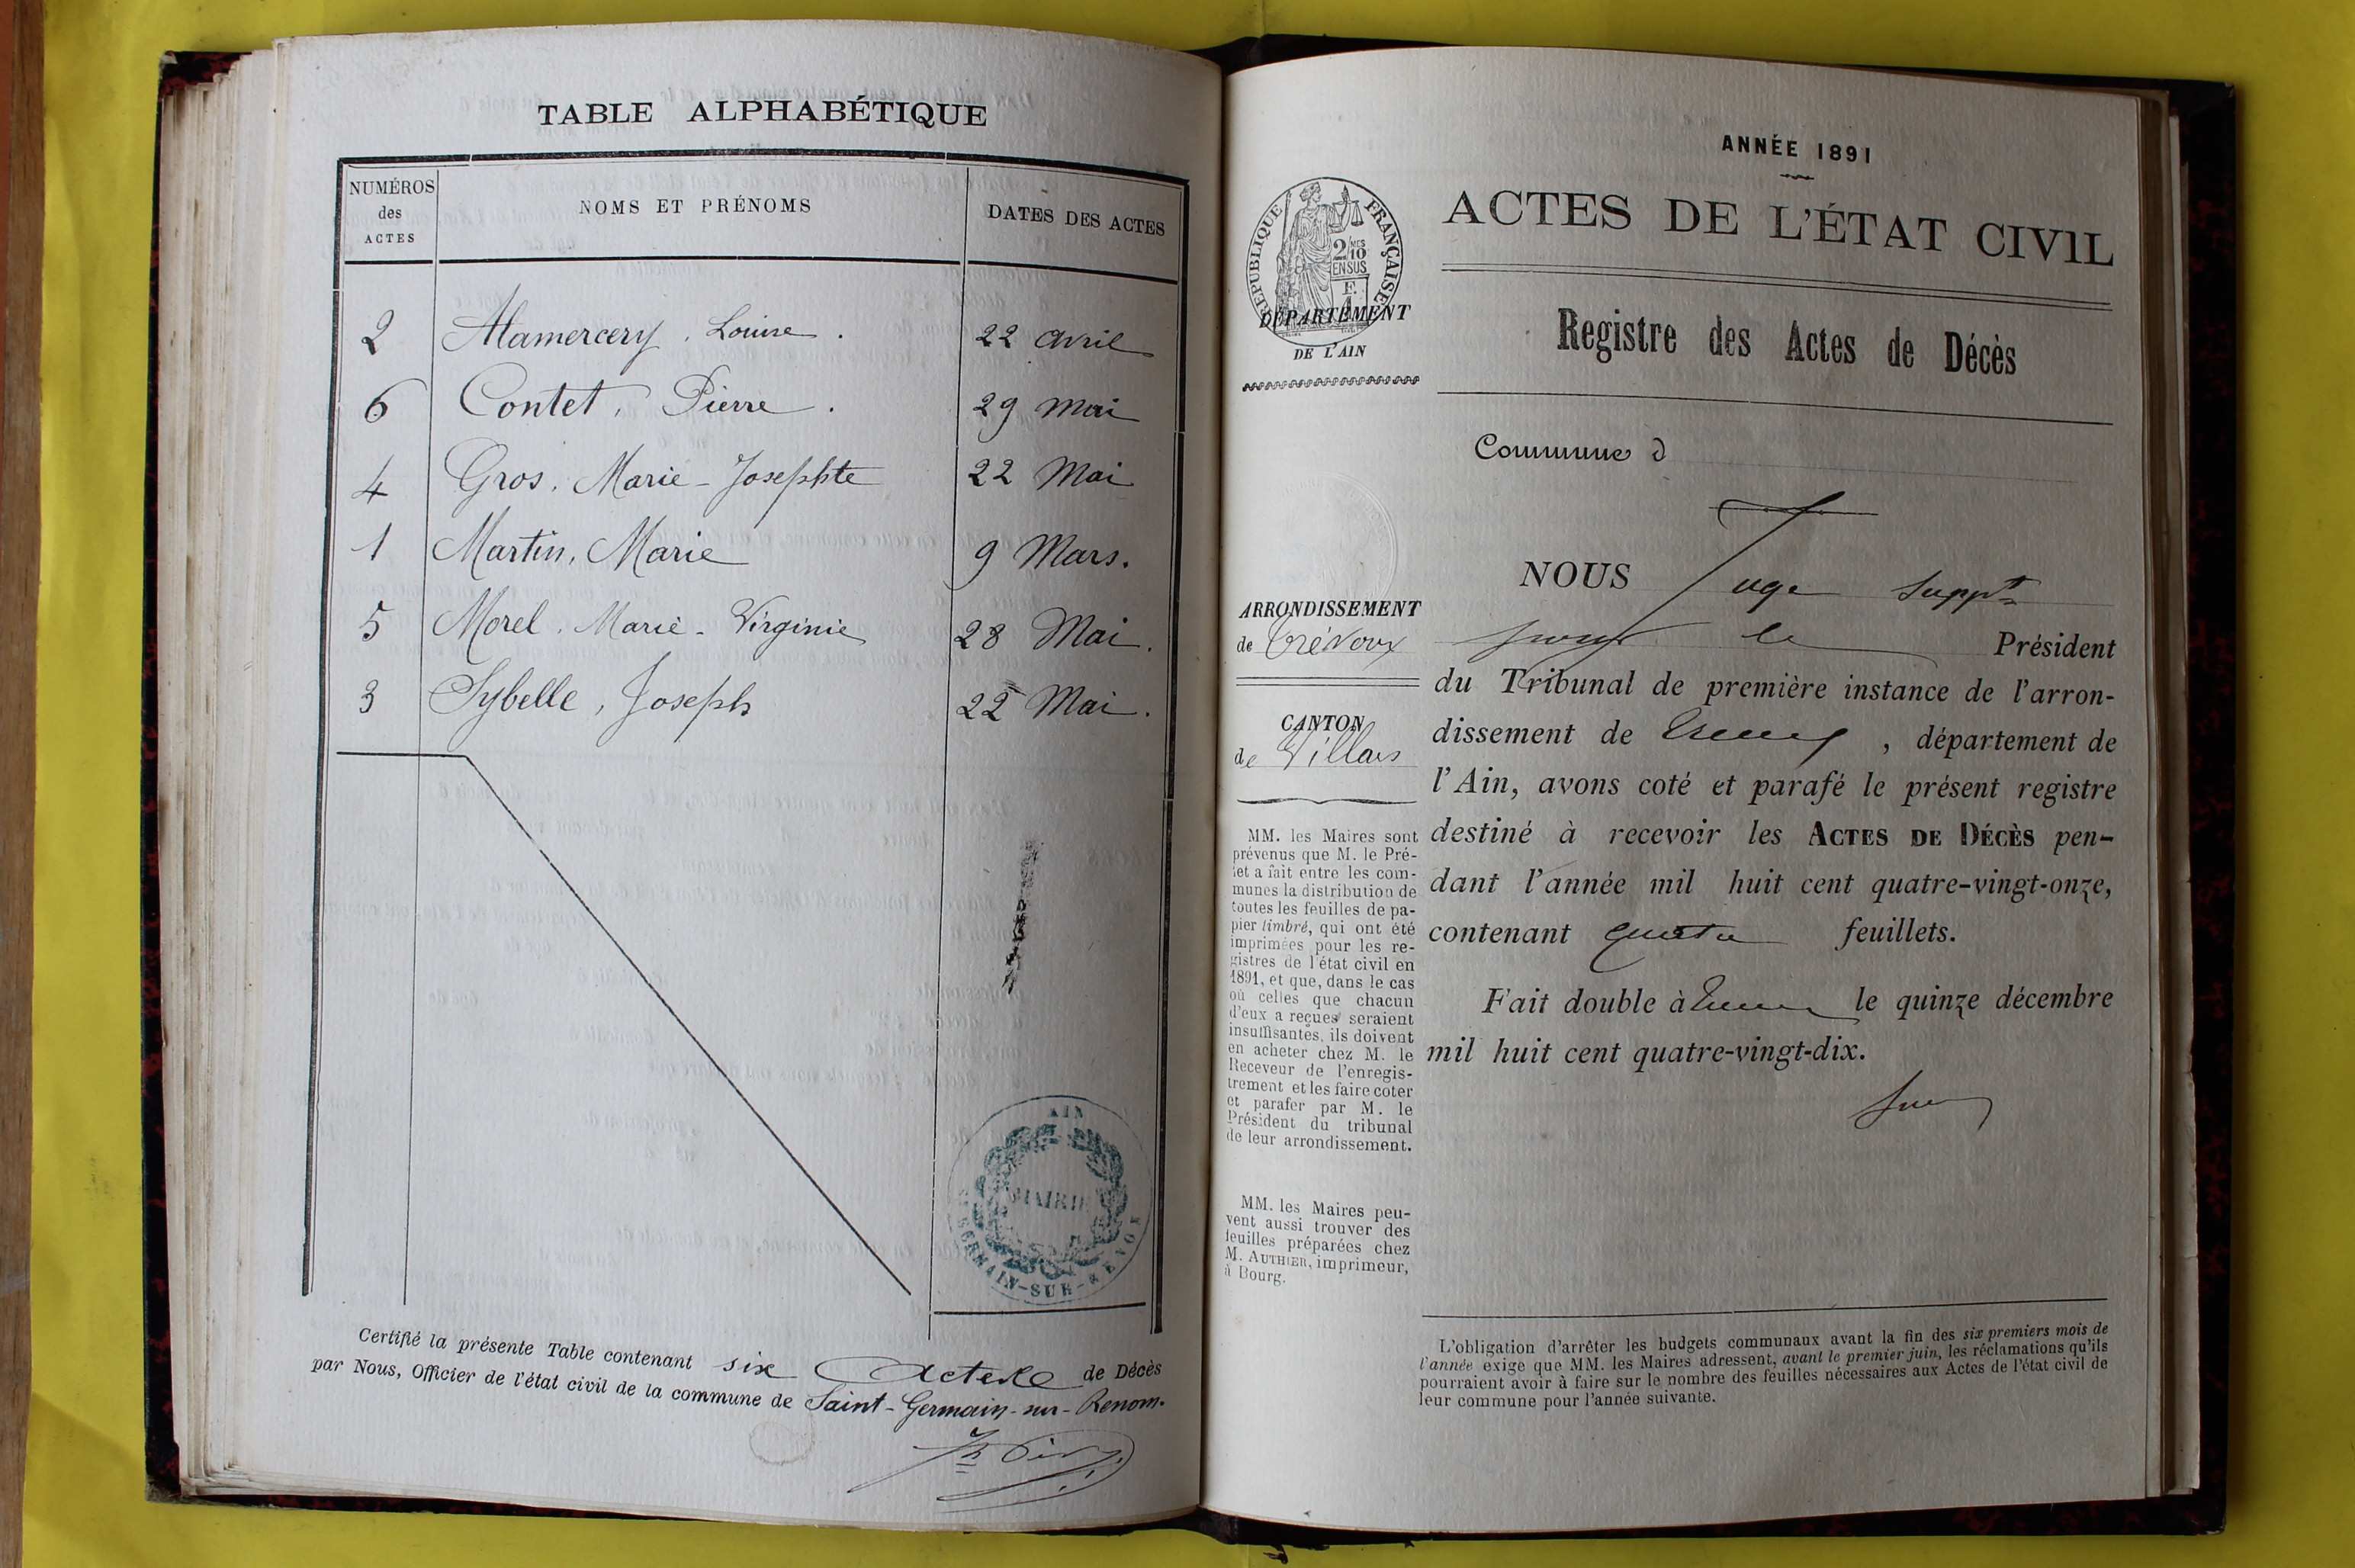 TABLE ALPHABÉTIQUE
NUMÉROS des ACTES
NOMS ET PRÉNOMS
DATES DES ACTES
2 Alamercery, Louise. 22 avril
6 Contet, Pierre. 29 mai
4 Gros, Marie-Josephte 22 Mai
1 Martin, Marie 9 Mars.
5 Morel, Marie-Virginie 28 Mai.
3 Sybelle, Joseph 22 Mai.
AIN
MAIRIE
GERMAIN-SUR-RENON
Certifié la présente Table contenant six Actes de Décès
par Nous, Officier de l'état civil de la commune de Saint-Germain-sur-Renom.
ANNÉE 1891
ACTES DE L'ÉTAT CIVIL
RÉPUBLIQUE FRANÇAISE
2/10 MES
EN SUS
DÉPARTEMENT
DE L'AIN
Registre des Actes de Décès
Commune d
ARRONDISSEMENT
de Trévoux
CANTON
de Villars
MM. les Maires sont
prévenus que M. le Pré-
fet a fait entre les com-
munes la distribution de
toutes les feuilles de pa-
pier timbré, qui ont été
imprimées pour les re-
gistres de l'état civil en
1891, et que, dans le cas
où celles que chacun
d'eux a reçues seraient
insuffisantes, ils doivent
en acheter chez M. le
Receveur de l'enregis-
trement et les faire coter
et parafer par M. le
Président du tribunal
de leur arrondissement.
MM. les Maires peu-
vent aussi trouver des
feuilles préparées chez
M. AUTHIER, imprimeur,
à Bourg.
NOUS Juge suppt
pour le Président
du Tribunal de première instance de l'arron-
dissement de Trévoux, département de
l'Ain, avons coté et parafé le présent registre
destiné à recevoir les ACTES DE DÉCÈS pen-
dant l'année mil huit cent quatre-vingt-onze,
contenant quatre feuillets.
Fait double à Trévoux le quinze décembre
mil huit cent quatre-vingt-dix.
L'obligation d'arrêter les budgets communaux avant la fin des six premiers mois de
l'année exige que MM. les Maires adressent, avant le premier juin, les réclamations qu'ils
pourraient avoir à faire sur le nombre des feuilles nécessaires aux Actes de l'état civil de
leur commune pour l'année suivante.